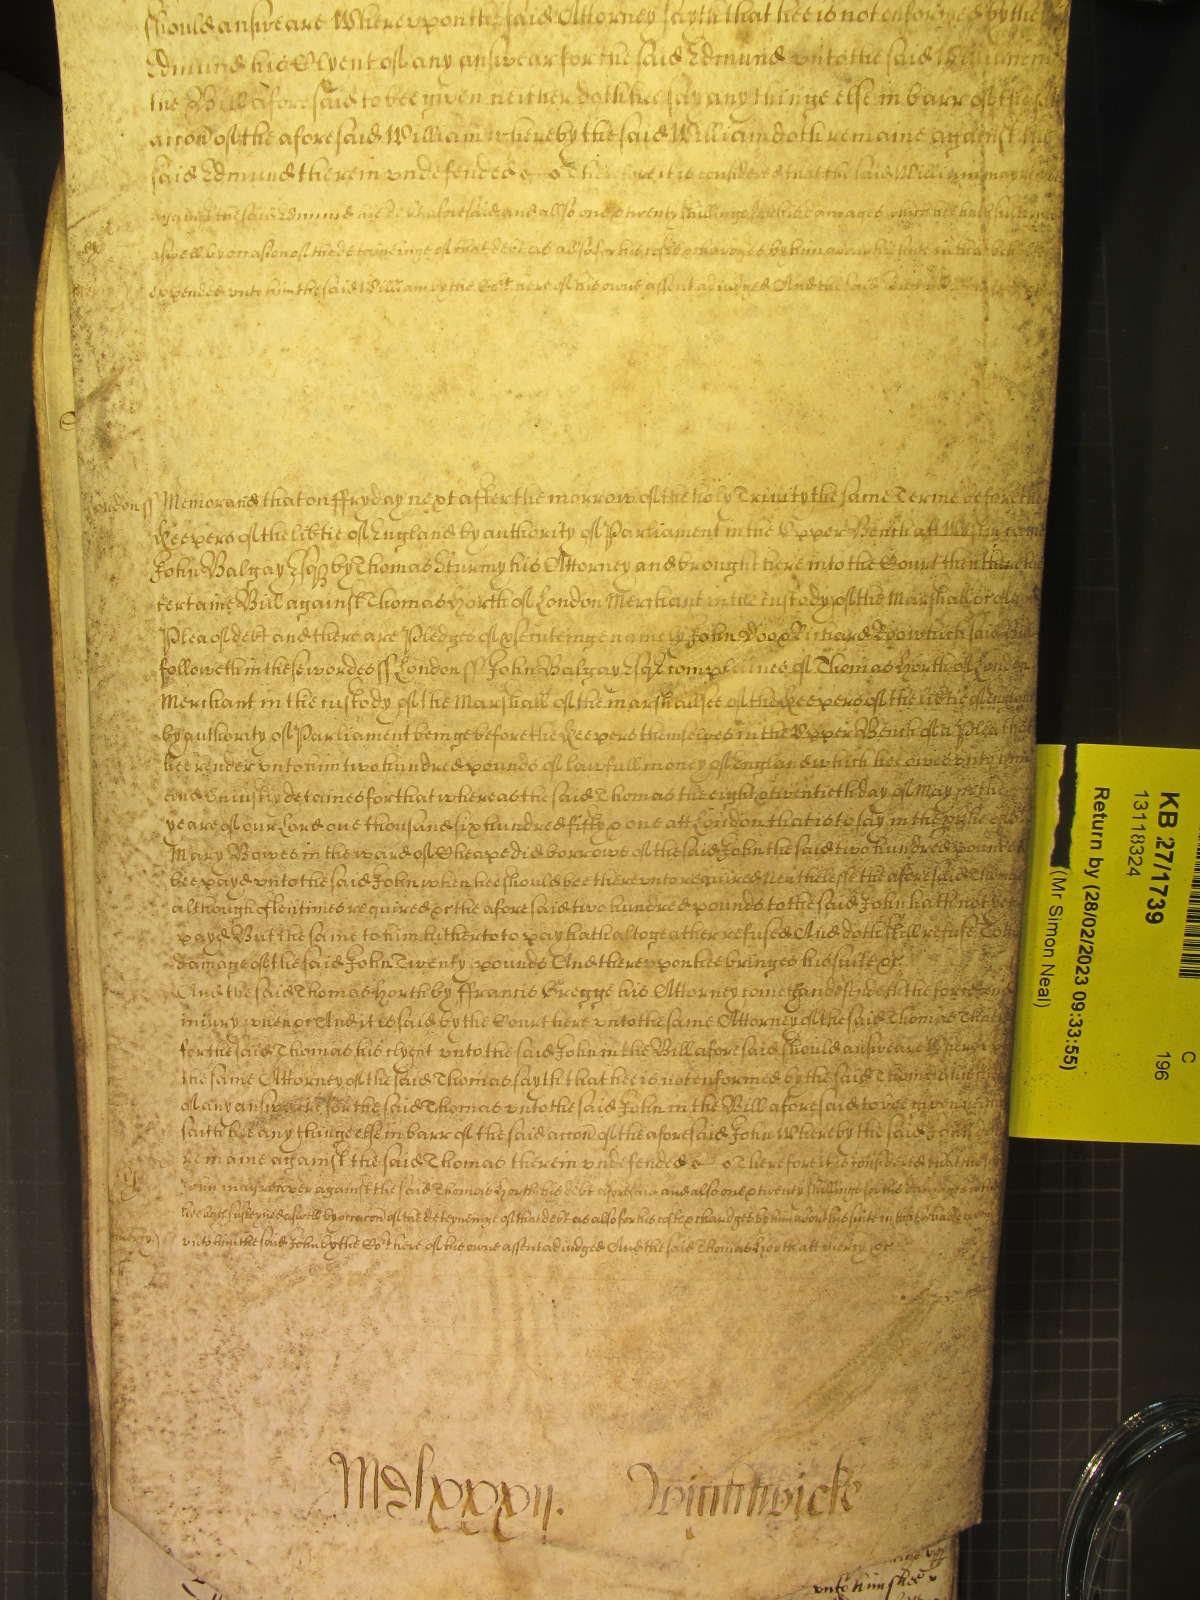 should answeare Whereupon the said Attorney sayth that hee is not enformed by the
Edmund his Clyent of any answear for the said Edmund unto the said William in
the Bill aforesaid to bee given neither doth hee say any thinge else in barr of the
accon of the aforesaid William whereby the said William doth remaine against the
said Edmund therein undefended &c Therefore it is considered that the said William may
against the said Edmund his debt aforesaid and also one & twenty shillinges for his damages which hee hath
aswell by occasion of the deteineinge of that debt as also for his costes & charges by him about his suite in that
expended unto him the said William by the Cort here of his owne assent adiudged And the said
London ss Memorand that on ffryday next after the morrow of the holy Trinity the same Terme before the
Keepers of the libtie of England by authority of Parliament in the Upper Bench att Westm came
John Balgay Esqr by Thomas Sturmy his Attorney and brought here into the Court then there his
certaine Bill against Thomas North of London Merchant in the custody of the Marshall &c of a
Plea of debt and there are Pledges of psecuteinge namely John Doo & Richard Roo which said Bill
followeth in these wordes ss London ss John Balgay Esqr complaines of Thomas North of London
Merchant in the custody of the Marshall of the marshallsee of the Keepers of the libtie of England
by authority of Parliament beinge before the Keepers themselves in the Upper Bench of a Plea that
hee render unto him two hundred pounds of lawfull money of England which hee owes unto him
and uniustly detaines for that whereas the said Thomas the eight & twentieth day of May in the
yeare of our Lord one thousand six hundred fifty & one att London that is to say in the pish of
Mary Bowe in the ward of Cheape did borrowe of the said John the said two hundred pounds to
bee payd unto the said John when hee should bee thereunto required Nevthelesse the aforesaid Thomas
although oftentimes required &c the aforesaid two hundred pounds to the said John hath not yet
payd But the same to him hitherto to pay hath altogeather refused And doth still refuse To the
damage of the said John Twenty pounds And thereupon hee bringes his suite &c
And the said Thomas North by ffrancis Gregge his Attorney cometh and defendeth the force and
iniury when &c And it is said by the Court here unto the same Attorney of the said Thomas That
for the said Thomas his clyent unto the said John in the Bill aforesaid should answeare Whereupon
the same Attorney of the said Thomas sayth that hee is not enformed by the said Thomas his
of any answeare for the said Thomas unto the said John in the Bill aforesaid to bee given
saith hee any thinge else in barr of the said accon of the aforesaid John Whereby the said John
remaine against the said Thomas therein undefended &c Therefore it is considered that the
John may recover against the said Thomas North his debt aforesaid and also one & twenty shillinges for his damages which
hee hath susteyned aswell by occacon of the deteyninge of that debt as also for his costes & chardges by him about his suite in that behalfe
unto him the said John by the Cort here of his owne assent adiudged And the said Thomas North att mercy &c
mercy
Mdlxxxxii. Wightwicke
unto him shee
KB 27/1739
13118324
C
196
Return by (28/02/2023 09:33:55)
(Mr Simon Neal)